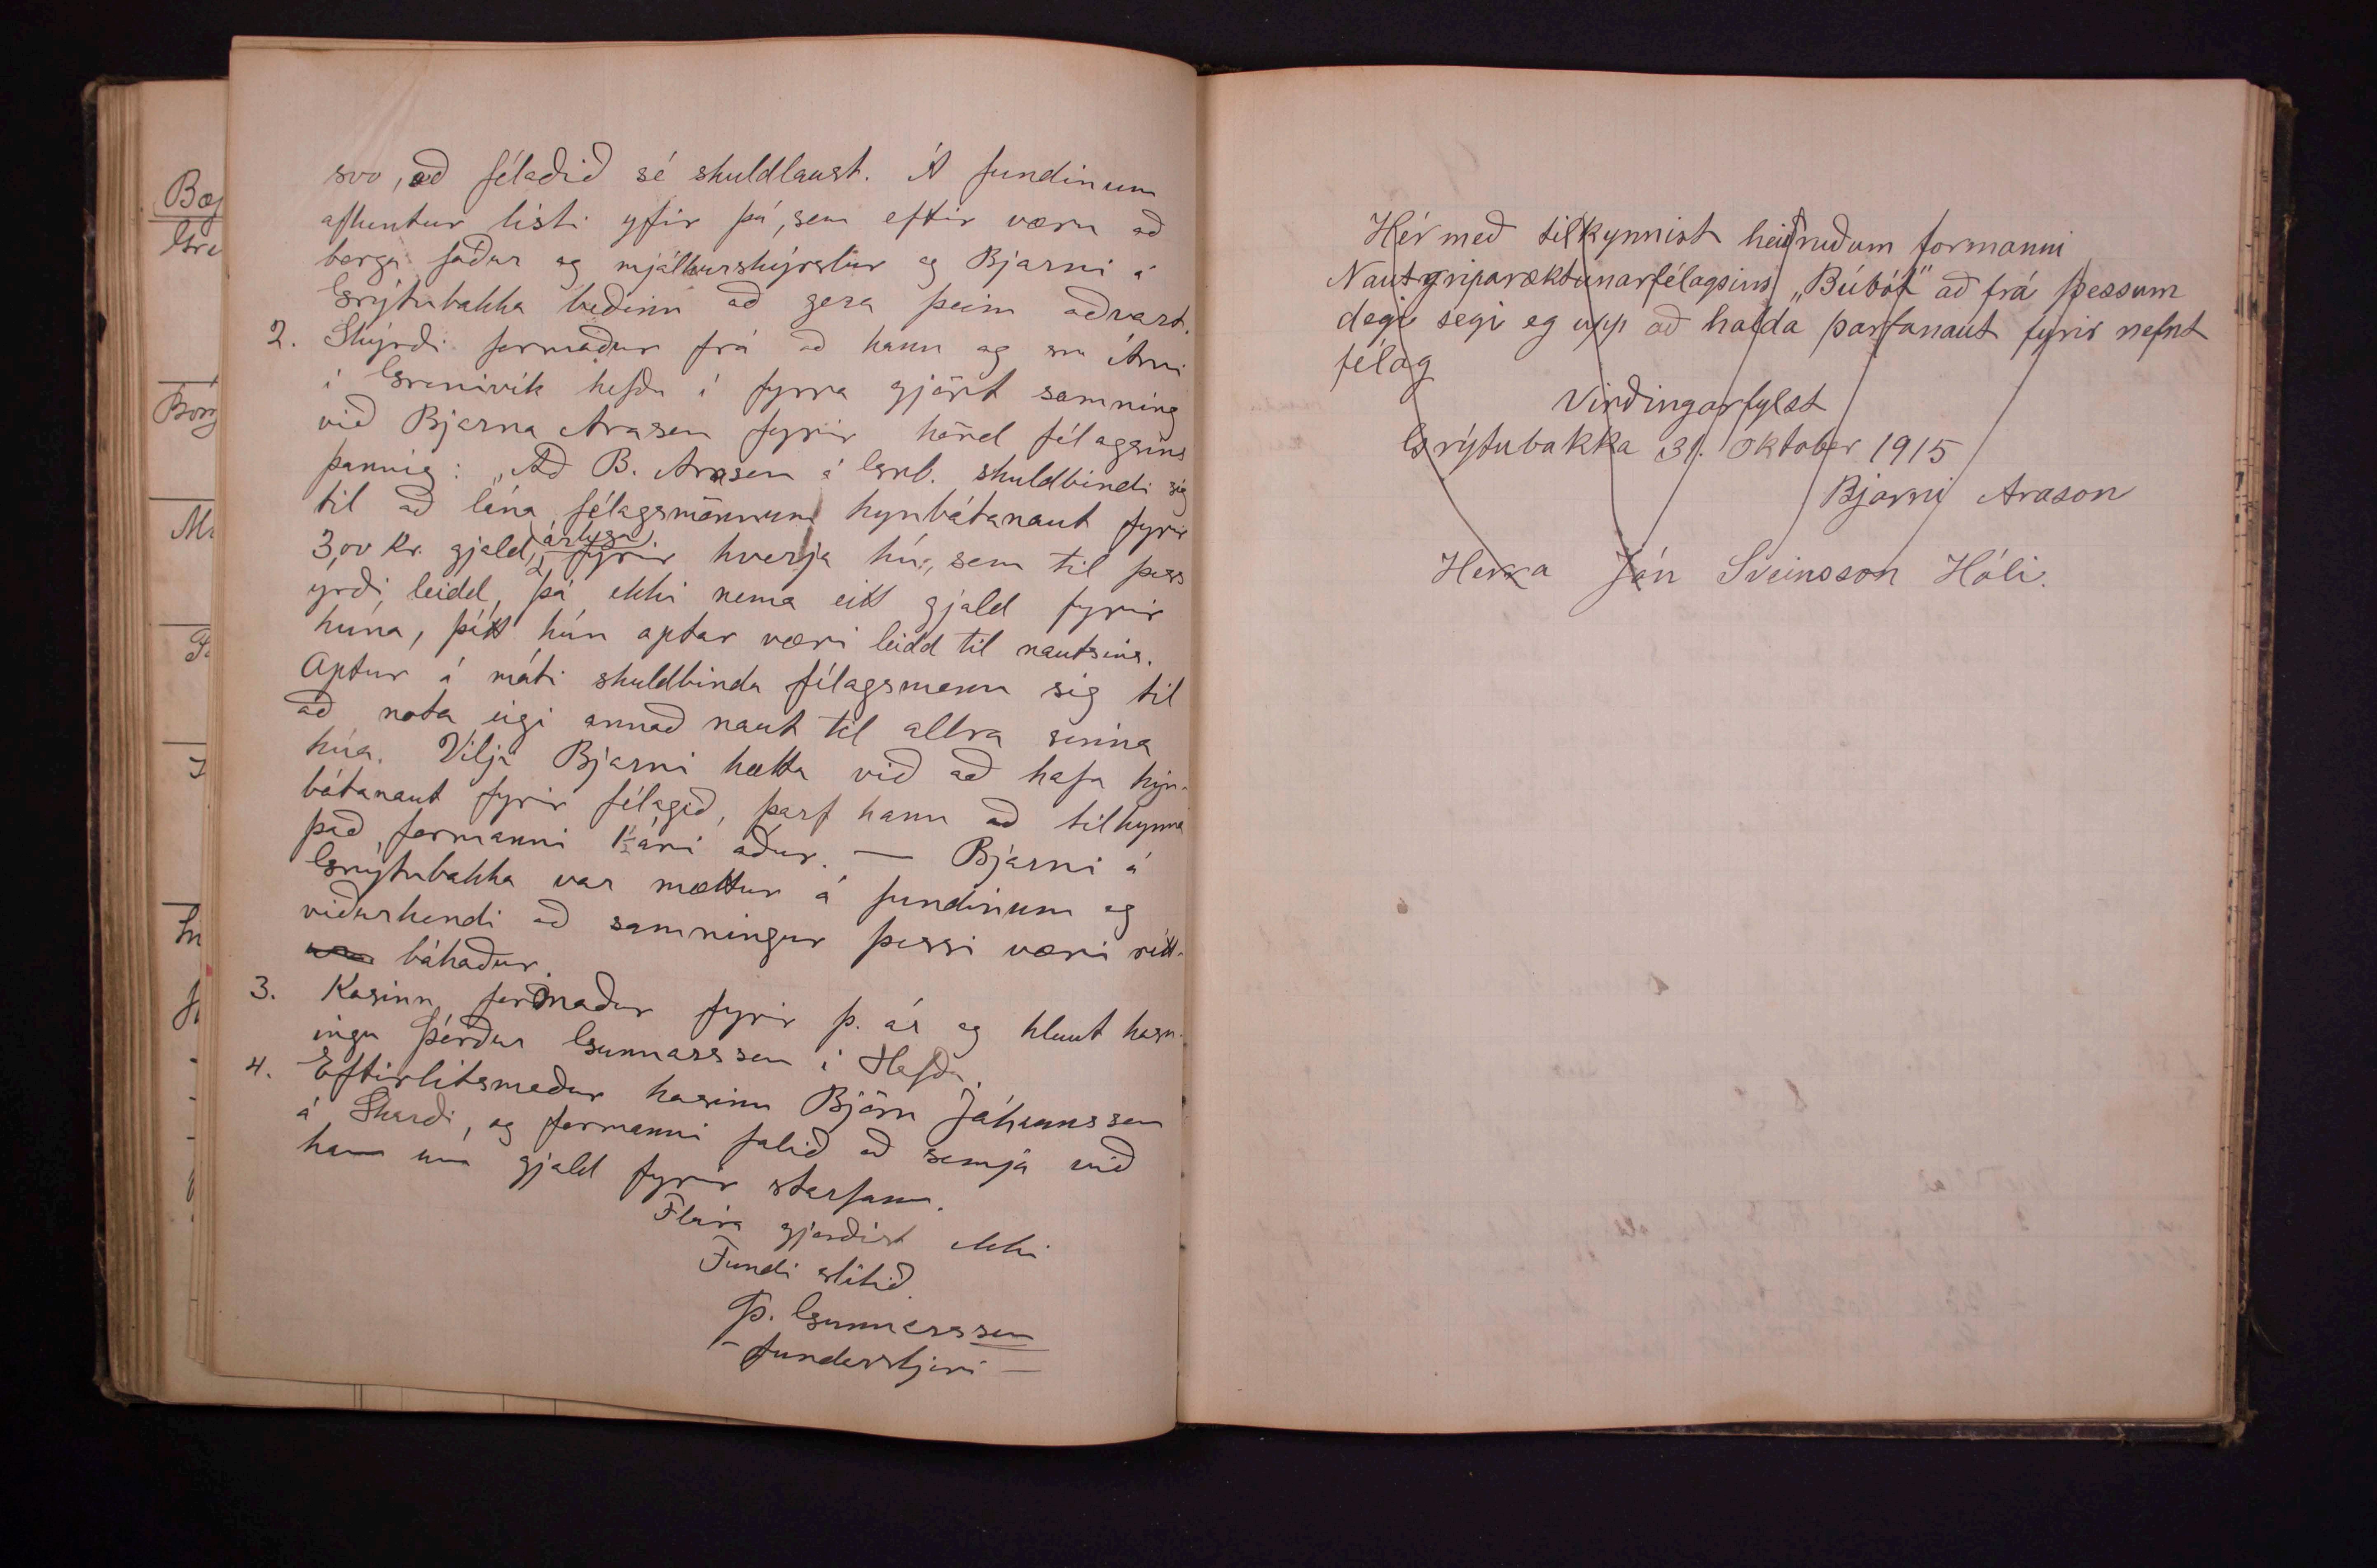 svo, að félaðið sé skuldlaust. Á fundinum
afhentur listi yfir þá, sem eftir væru að
borga fóður og mjólkurskýrslur og Bjarni á
Grýtubakka beðinn að gera þeim aðvart.
2. Skýrði formaður frá að hann og sra Árni
í Grenivík hefðu í fyrra gjört samning
við Bjarna Arason fyrir hönd félagsins
þannig: „Að B. Arason á Grb. skuldbindi sig
til að lána félagsmönnum kynbótanaut fyrir
3,00 kr. gjald, árlega, fyrir hverja kú, sem til þess
yrði leidd, þó ekki nema eitt gjald fyrir
kúna, þótt hún optar væri leidd til nautsins.
Aptur á móti skuldbinda félagsmenn sig til
að nota eigi annað naut til allra sinna
kúa. Vilji Bjarni hætta við að hafa kyn-
bótanaut fyrir félagið, þarf hann að tilkynna
það formanni ½ ári áður. — Bjarni á
Grýtubakka var mættur á fundinum og
viðurkendi að samningur þessi væri rétt-
bókaður.
3. Kosinn formaður fyrir þ. ár og hlaut kosn-
ingu Þórður Gunnarsson í Höfða.
4. Eftirlitsmaður kosinn Björn Jóhannsson
á Skarði, og formanni falið að semja við
hann um gjald fyrir starfann.
Fleira gjörðist ekki
Fundi slitið.
Þ. Gunnarsson
- fundarstjóri -
Hér með tilkynnist heiðruðum formanni
Nautgriparæktunarfélagsins „Búbót" að frá þessum
degi segi eg upp að halda þarfanaut fyrir nefnt
félag
Virðingarfylst
Grýtubakka 31. Oktober 1915
Bjarni Arason
Herra Jón Sveinsson Hóli.
Bæj
Gre
Borg